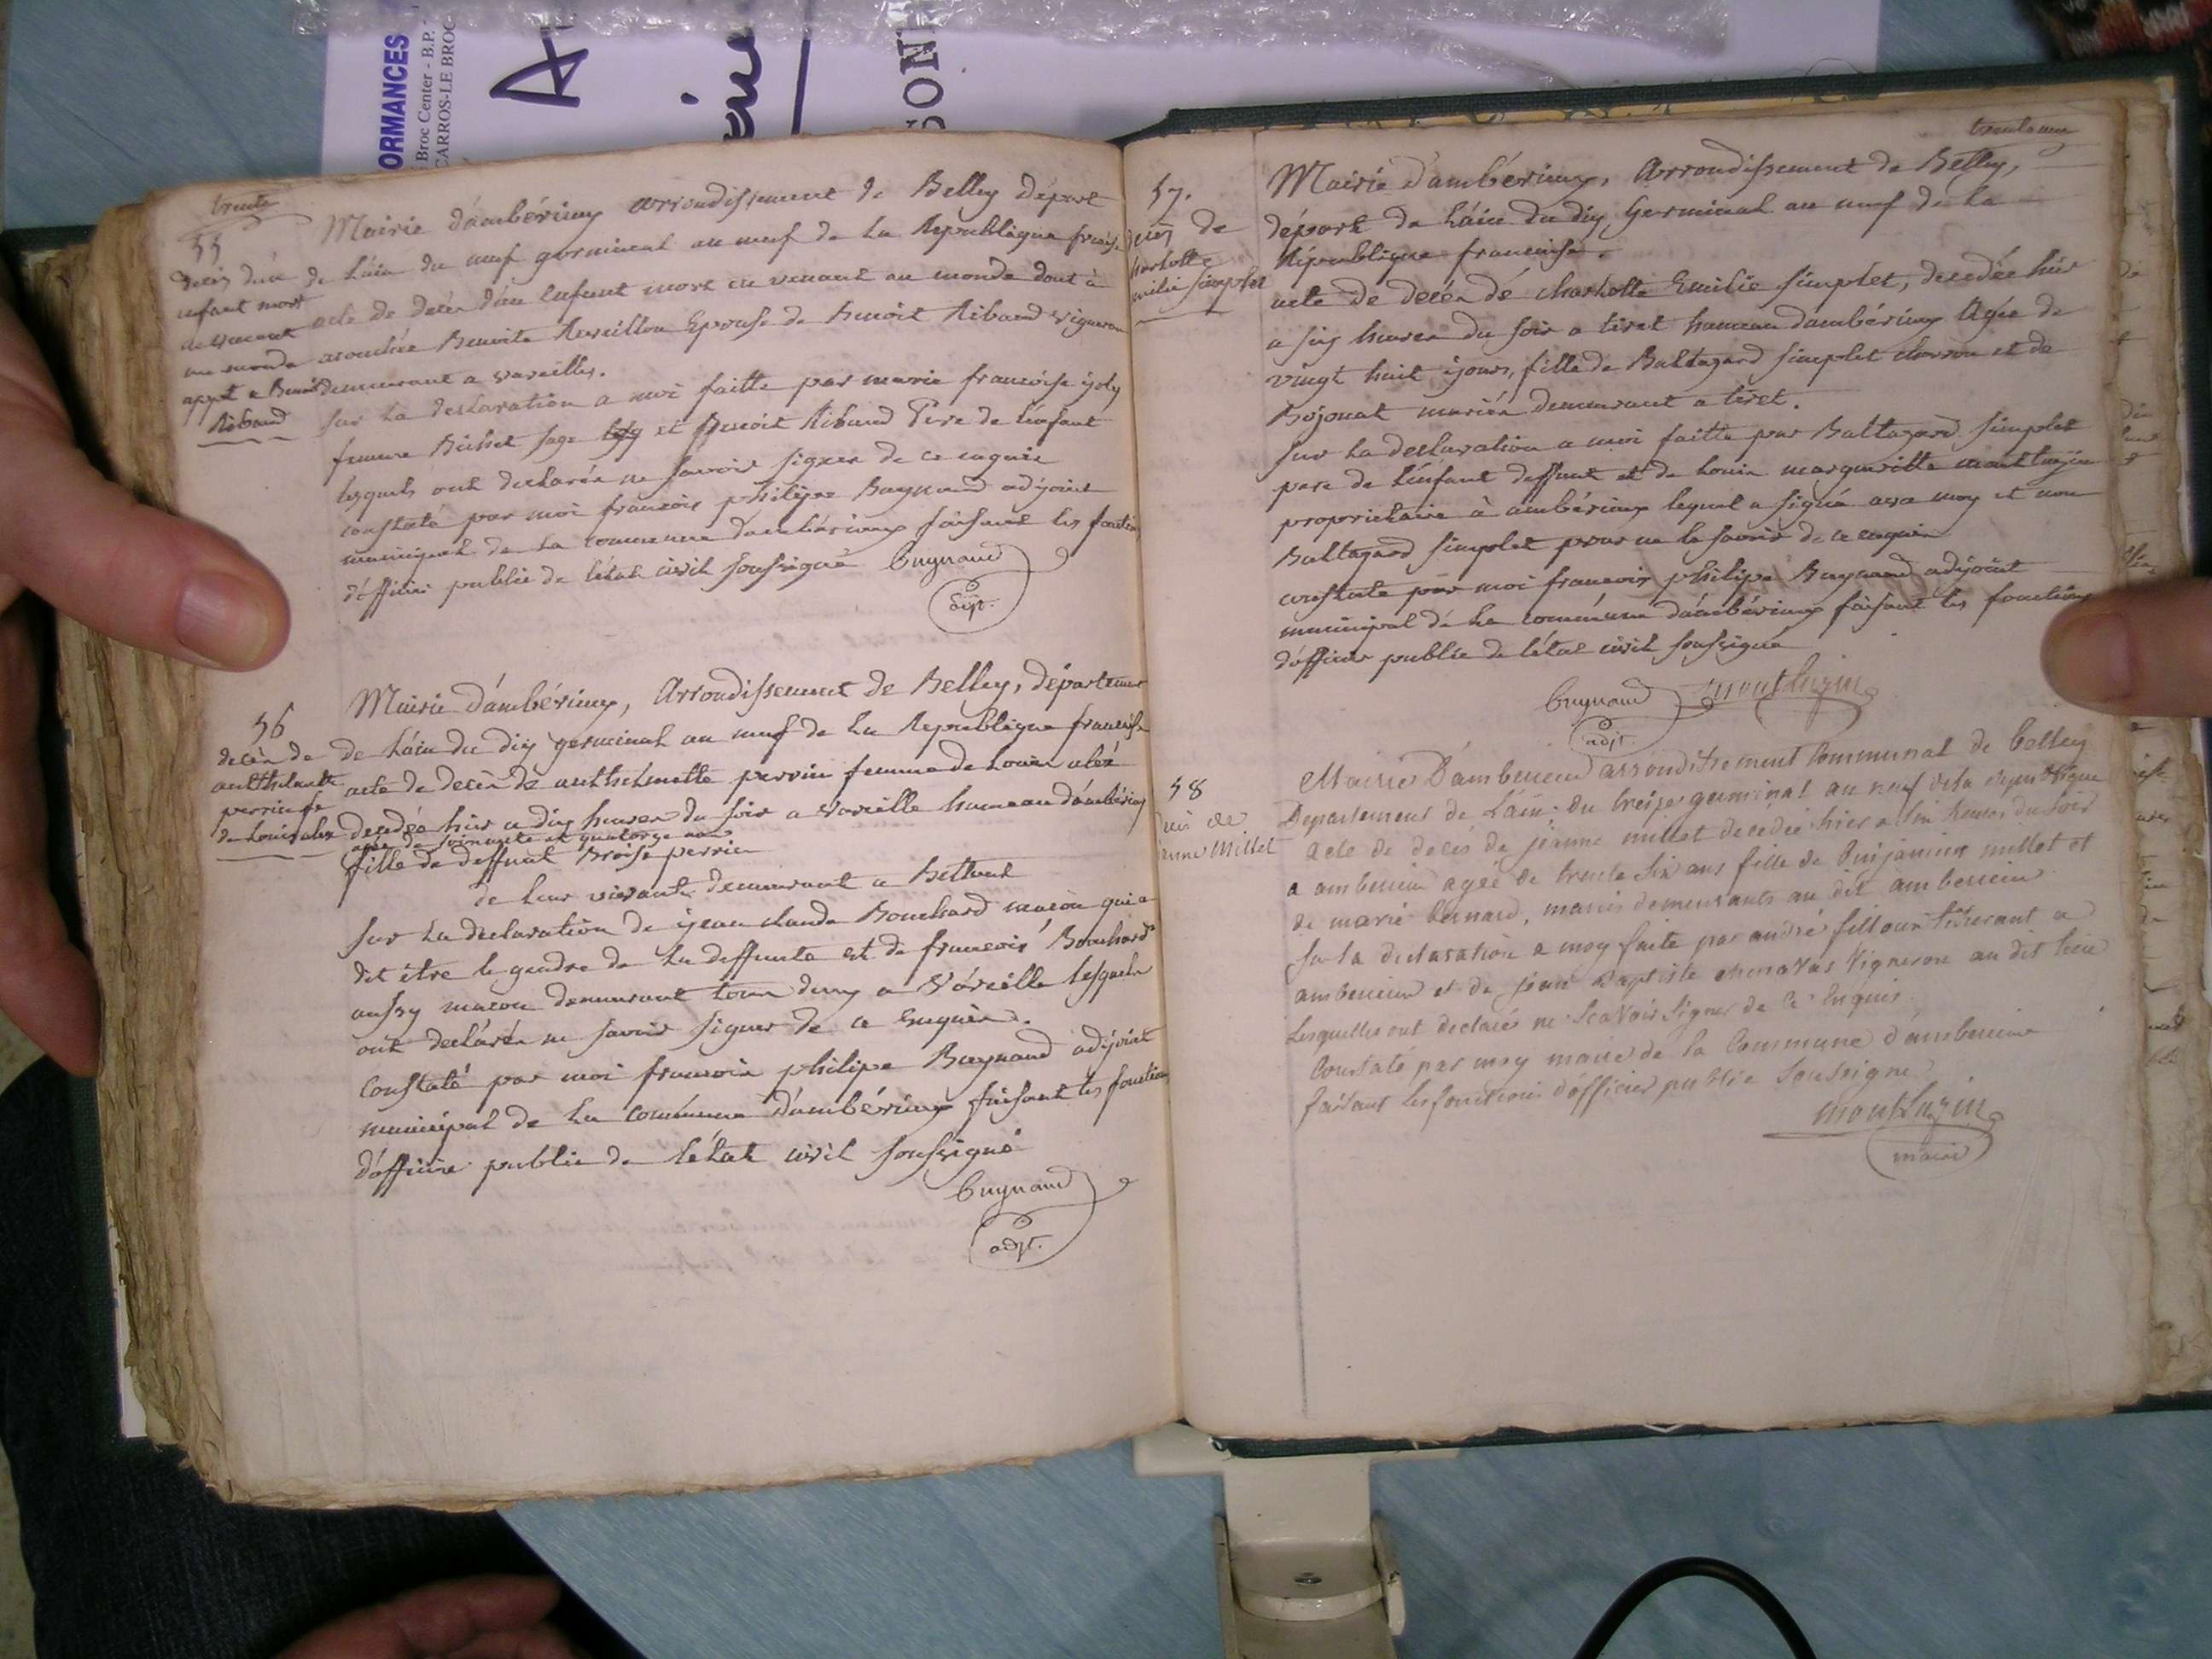 ORMANCES
Broc Center - B.P.
CARROS-LE BROC
SON
trente
55
decès d'un
enfant mort
en venant
au monde
appt a Benoit
Ribaud
Mairie d'ambérieux arrondissement de Belley départ
de L'ain du neuf germinal an neuf de La Republique francaise
acte de decès d'un Enfant mort en venant au monde dont à
acouchée Benoite Epouse de Benoit Ribaud vigneron
demeurant a vareilles.
sur La declaration a moi faitte par marie francoise joly
femme Bichet sage et Benoit Ribaud Père de L'enfant
lesquels ont declarés ne savoir signer de ce enquis
constaté par moi francois philipe Bugnand adjoint
municipal de La commune d'ambérieux faisant les fonctions
d'officier publie de l'état civil soussigné Bugnand
adjt.
56
decès de
anthelmette
perrin fe
de Louis alex
Mairie d'ambérieux, Arrondissement de Belley, département
de L'ain du dix germinal an neuf de La Republique francaise
acte de decès de anthelmette perrin femme de Louis alex
decedée hier a dix heures du soir a vareille hameau d'ambérieux
agée de soixante et quatorze ans
fille de deffunt perrin
de leur vivant demeurant a Bettant
sur La declaration de jean claude Bouchard macon qui a
dit être le gendre de La deffunte et de francois Bouchard
aussy macon demeurant tous deux a Vareille lesquels
ont declarés ne savoir signer de ce Enquis.
Constaté par moi francois philipe Bugnand adjoint
municipal de La commune d'ambérieux faisant les fonctions
d'officier publie de l'état civil soussigné
Bugnand
adjt.
trente une
57.
decès de
charlotte
emilie simplet
Mairie d'ambérieux, Arrondissement de Belley,
départ de L'ain du dix Germinal an neuf de La
République francaise.
acte de decès de charlotte Emilie simplet, decedée hier
a six heures du soir a tiret hameau d'ambérieux Agée de
vingt huit jours, fille de Baltazard simplet charron et de
Bojonat mariés demeurant a tiret.
sur La declaration a moi faitte par Baltazard simplet
pere de L'enfant deffunt et de Louis margueritte montluzin
proprietaire à ambérieux lequel a signé avec moy et non
Baltazard simplet pour ne le savoir de ce enquis
constaté par moi francois philipe Bugnand adjoint
municipal de La commune d'ambérieux faisant les fonctions
d'officier publie de l'état civil soussigné
Bugnand montluzin
adjt.
58
decès de
jeanne Millet
Mairie D'amberieux arrondissement Communal de Belley
Departement de L'ain; du treize germinal an neuf de la republique
acte de decès de jeanne millet decedée hier a six heures du soir
a amberieux agée de trente six ans fille de Benjamin millet et
de marie bernard, mariés demeurants au dit amberieux
sur la declaration a moy faite par andré fillour a
amberieux et de jean Baptiste vigneron au dit lieu
Lesquelles ont declaré ne scavoir signer de Ce Enquis.
Constaté par moy maire de la Commune d'amberieux
faisant les fonctions d'officier publie Soussigné
montluzin
maire